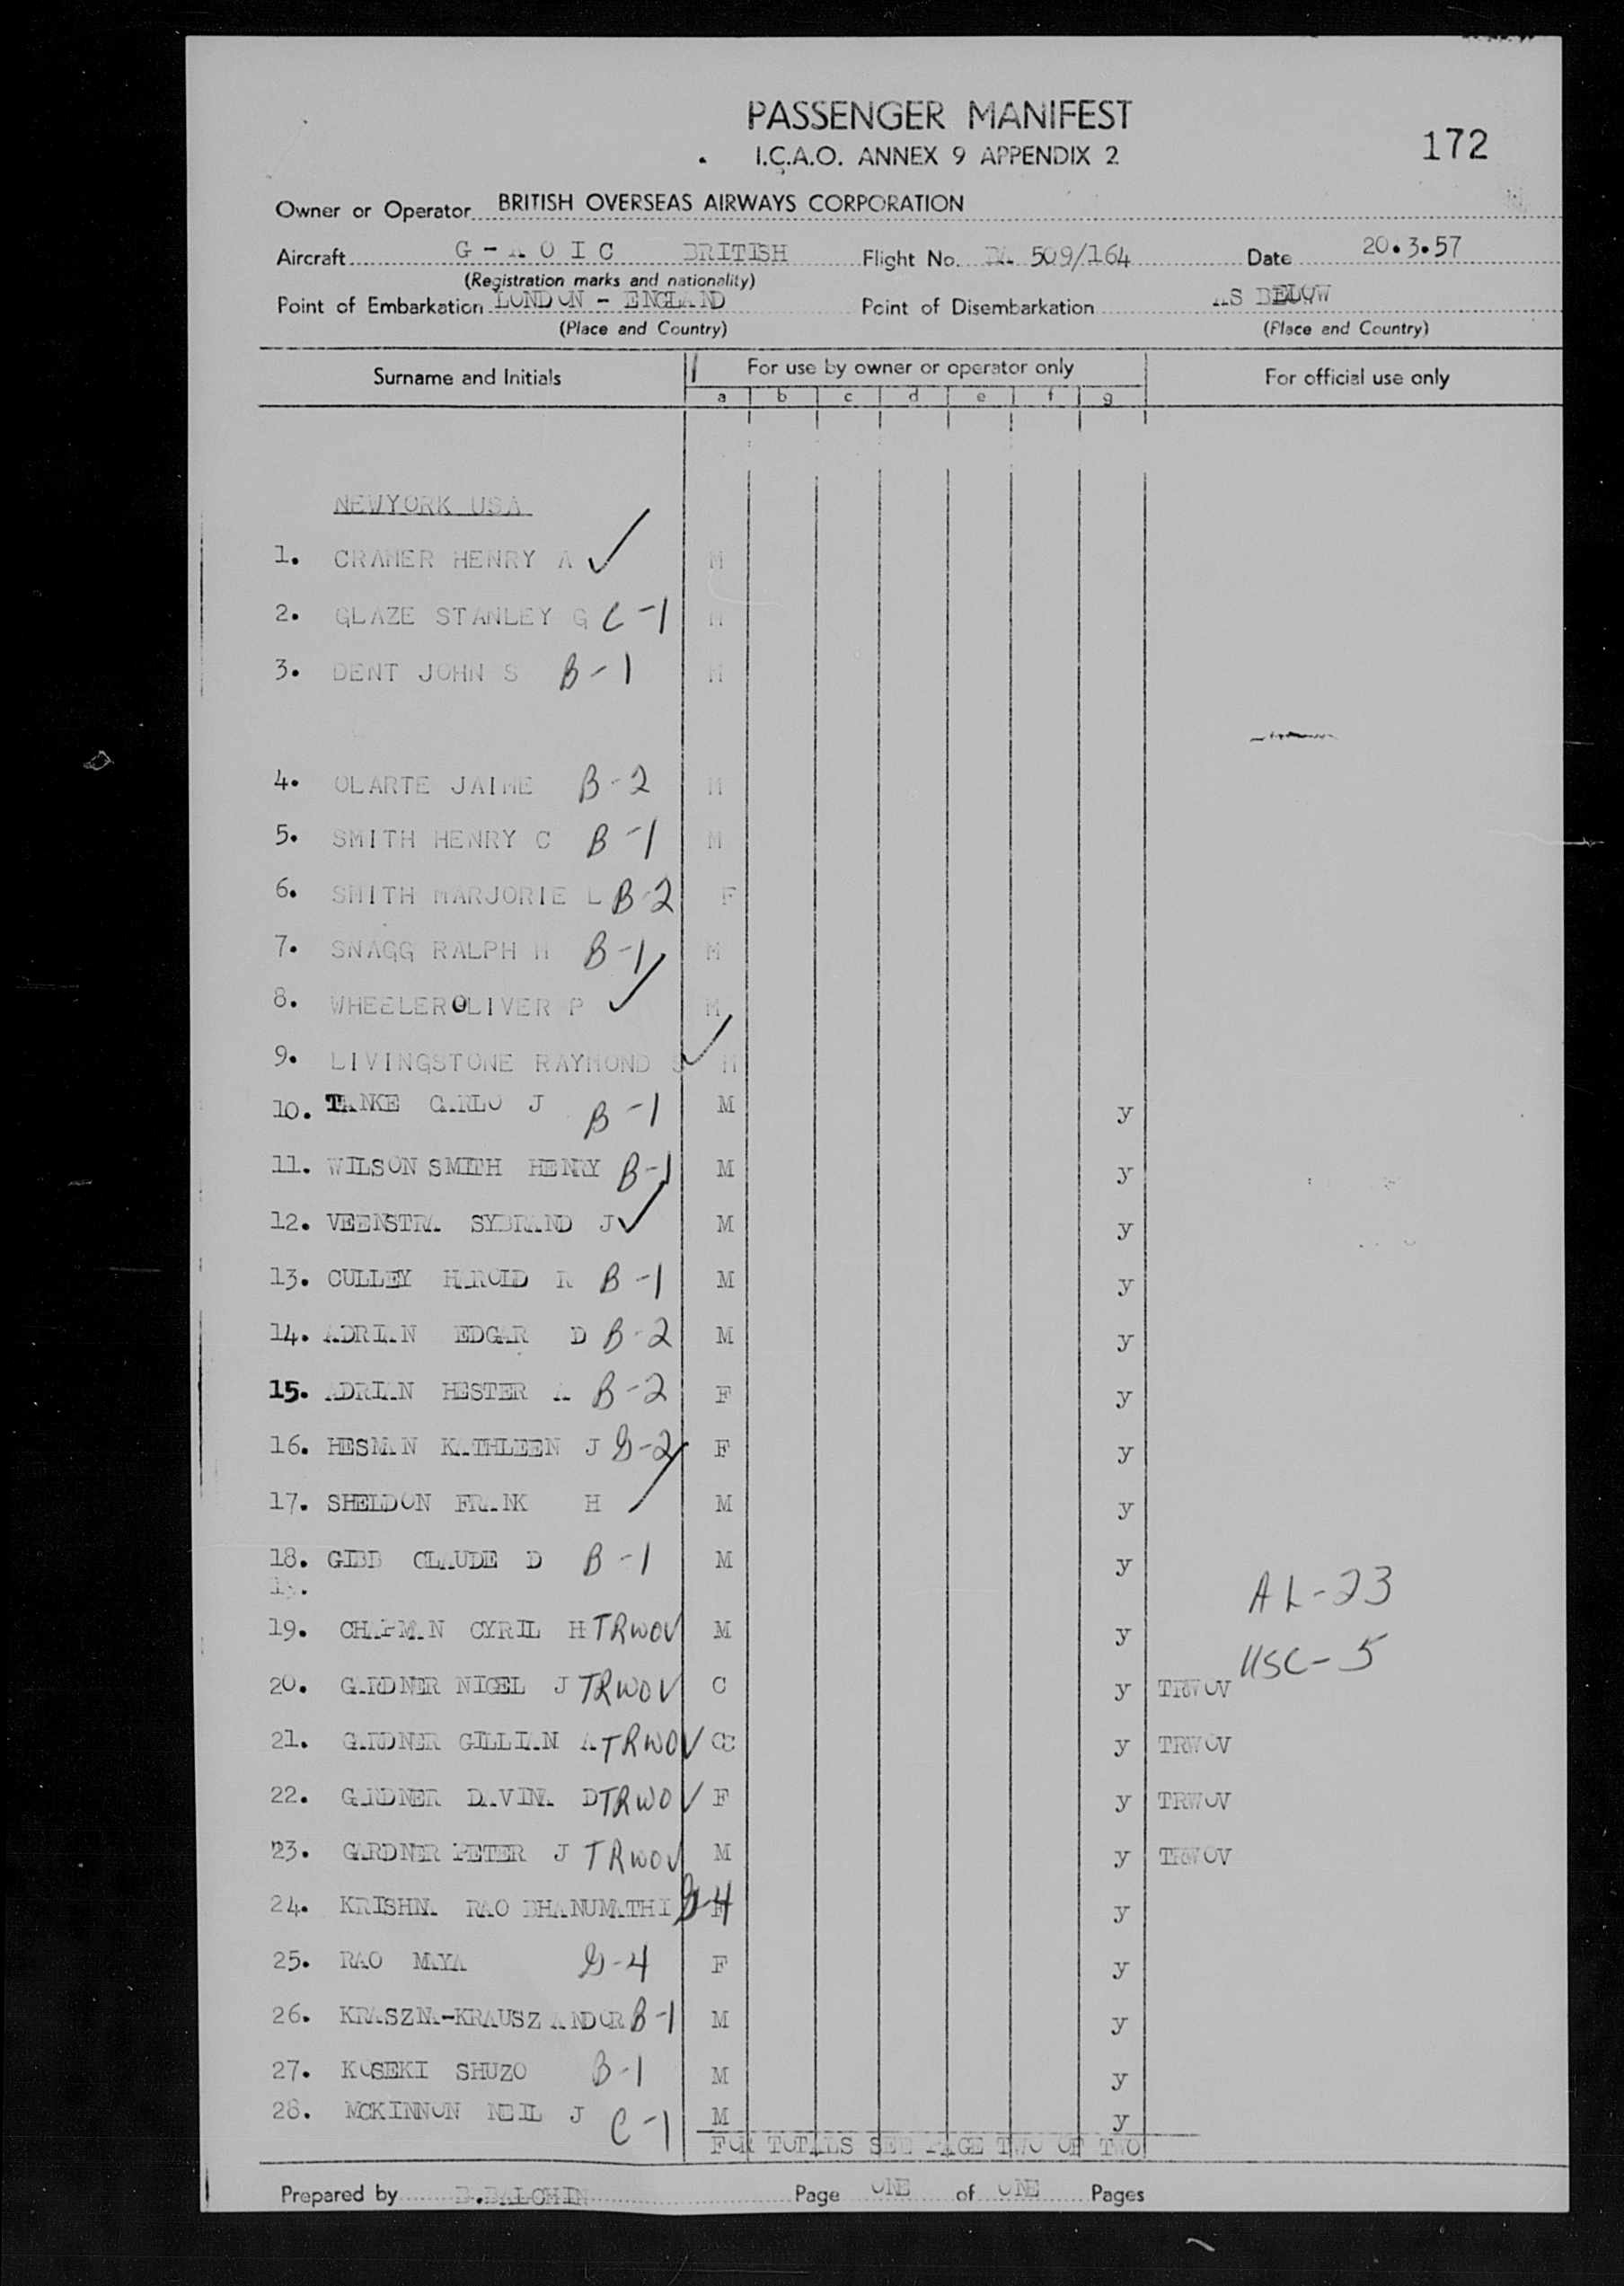 PASSENGER MANIFEST
I.C.A.O. ANNEX 9 APPENDIX 2
172
Owner or Operator BRITISH OVERSEAS AIRWAYS CORPORATION
Aircraft G - A O I C BRITISH Flight No. BA 509/164 Date 20.3.57
(Registration marks and nationality)
Point of Embarkation LONDON - ENGLAND Point of Disembarkation AS BELOW
(Place and Country) (Place and Country)
Surname and Initials For use by owner or operator only For official use only
a b c d e f g
NEWYORK USA
1. CRAMER HENRY A ✓ M
2. GLAZE STANLEY G C-1 M
3. DENT JOHN S B-1 M
4. OLARTE JAIME B-2 M
5. SMITH HENRY C B-1 M
6. SMITH MARJORIE L B-2 F
7. SNAGG RALPH H B-1 M
8. WHEELER OLIVER P ✓ M
9. LIVINGSTONE RAYMOND S ✓ M
10. TANKE CARLO J B-1 M y
11. WILSON SMITH HENRY B-1 M y
12. VEENSTRA SYBRAND J ✓ M y
13. CULLEY HAROLD R B-1 M y
14. ADRIAN EDGAR D B-2 M y
15. ADRIAN HESTER A B-2 F y
16. HESMAN KATHLEEN J G-2 F y
17. SHELDON FRANK H M y
18. GIBB CLAUDE D B-1 M y
19.
AL-23
19. CHAPMAN CYRIL H TRWOV M y
USC-5
20. GARDNER NIGEL J TRWOV C y TRWOV
21. GARDNER GILLIAN A TRWOV C y TRWOV
22. GARDNER DAVINA D TRWOV F y TRWOV
23. GARDNER PETER J TRWOV M y TRWOV
24. KRISHNA RAO BHANUMATHI G-4 F y
25. RAO MAYA G-4 F y
26. KRASZNA-KRAUSZ ANDOR B-1 M y
27. KOSEKI SHUZO B-1 M y
28. MCKINNON NEIL J C-1 M y
FOR TOTALS SEE PAGE TWO OF TWO
Prepared by B.BALCHIN Page ONE of ONE Pages